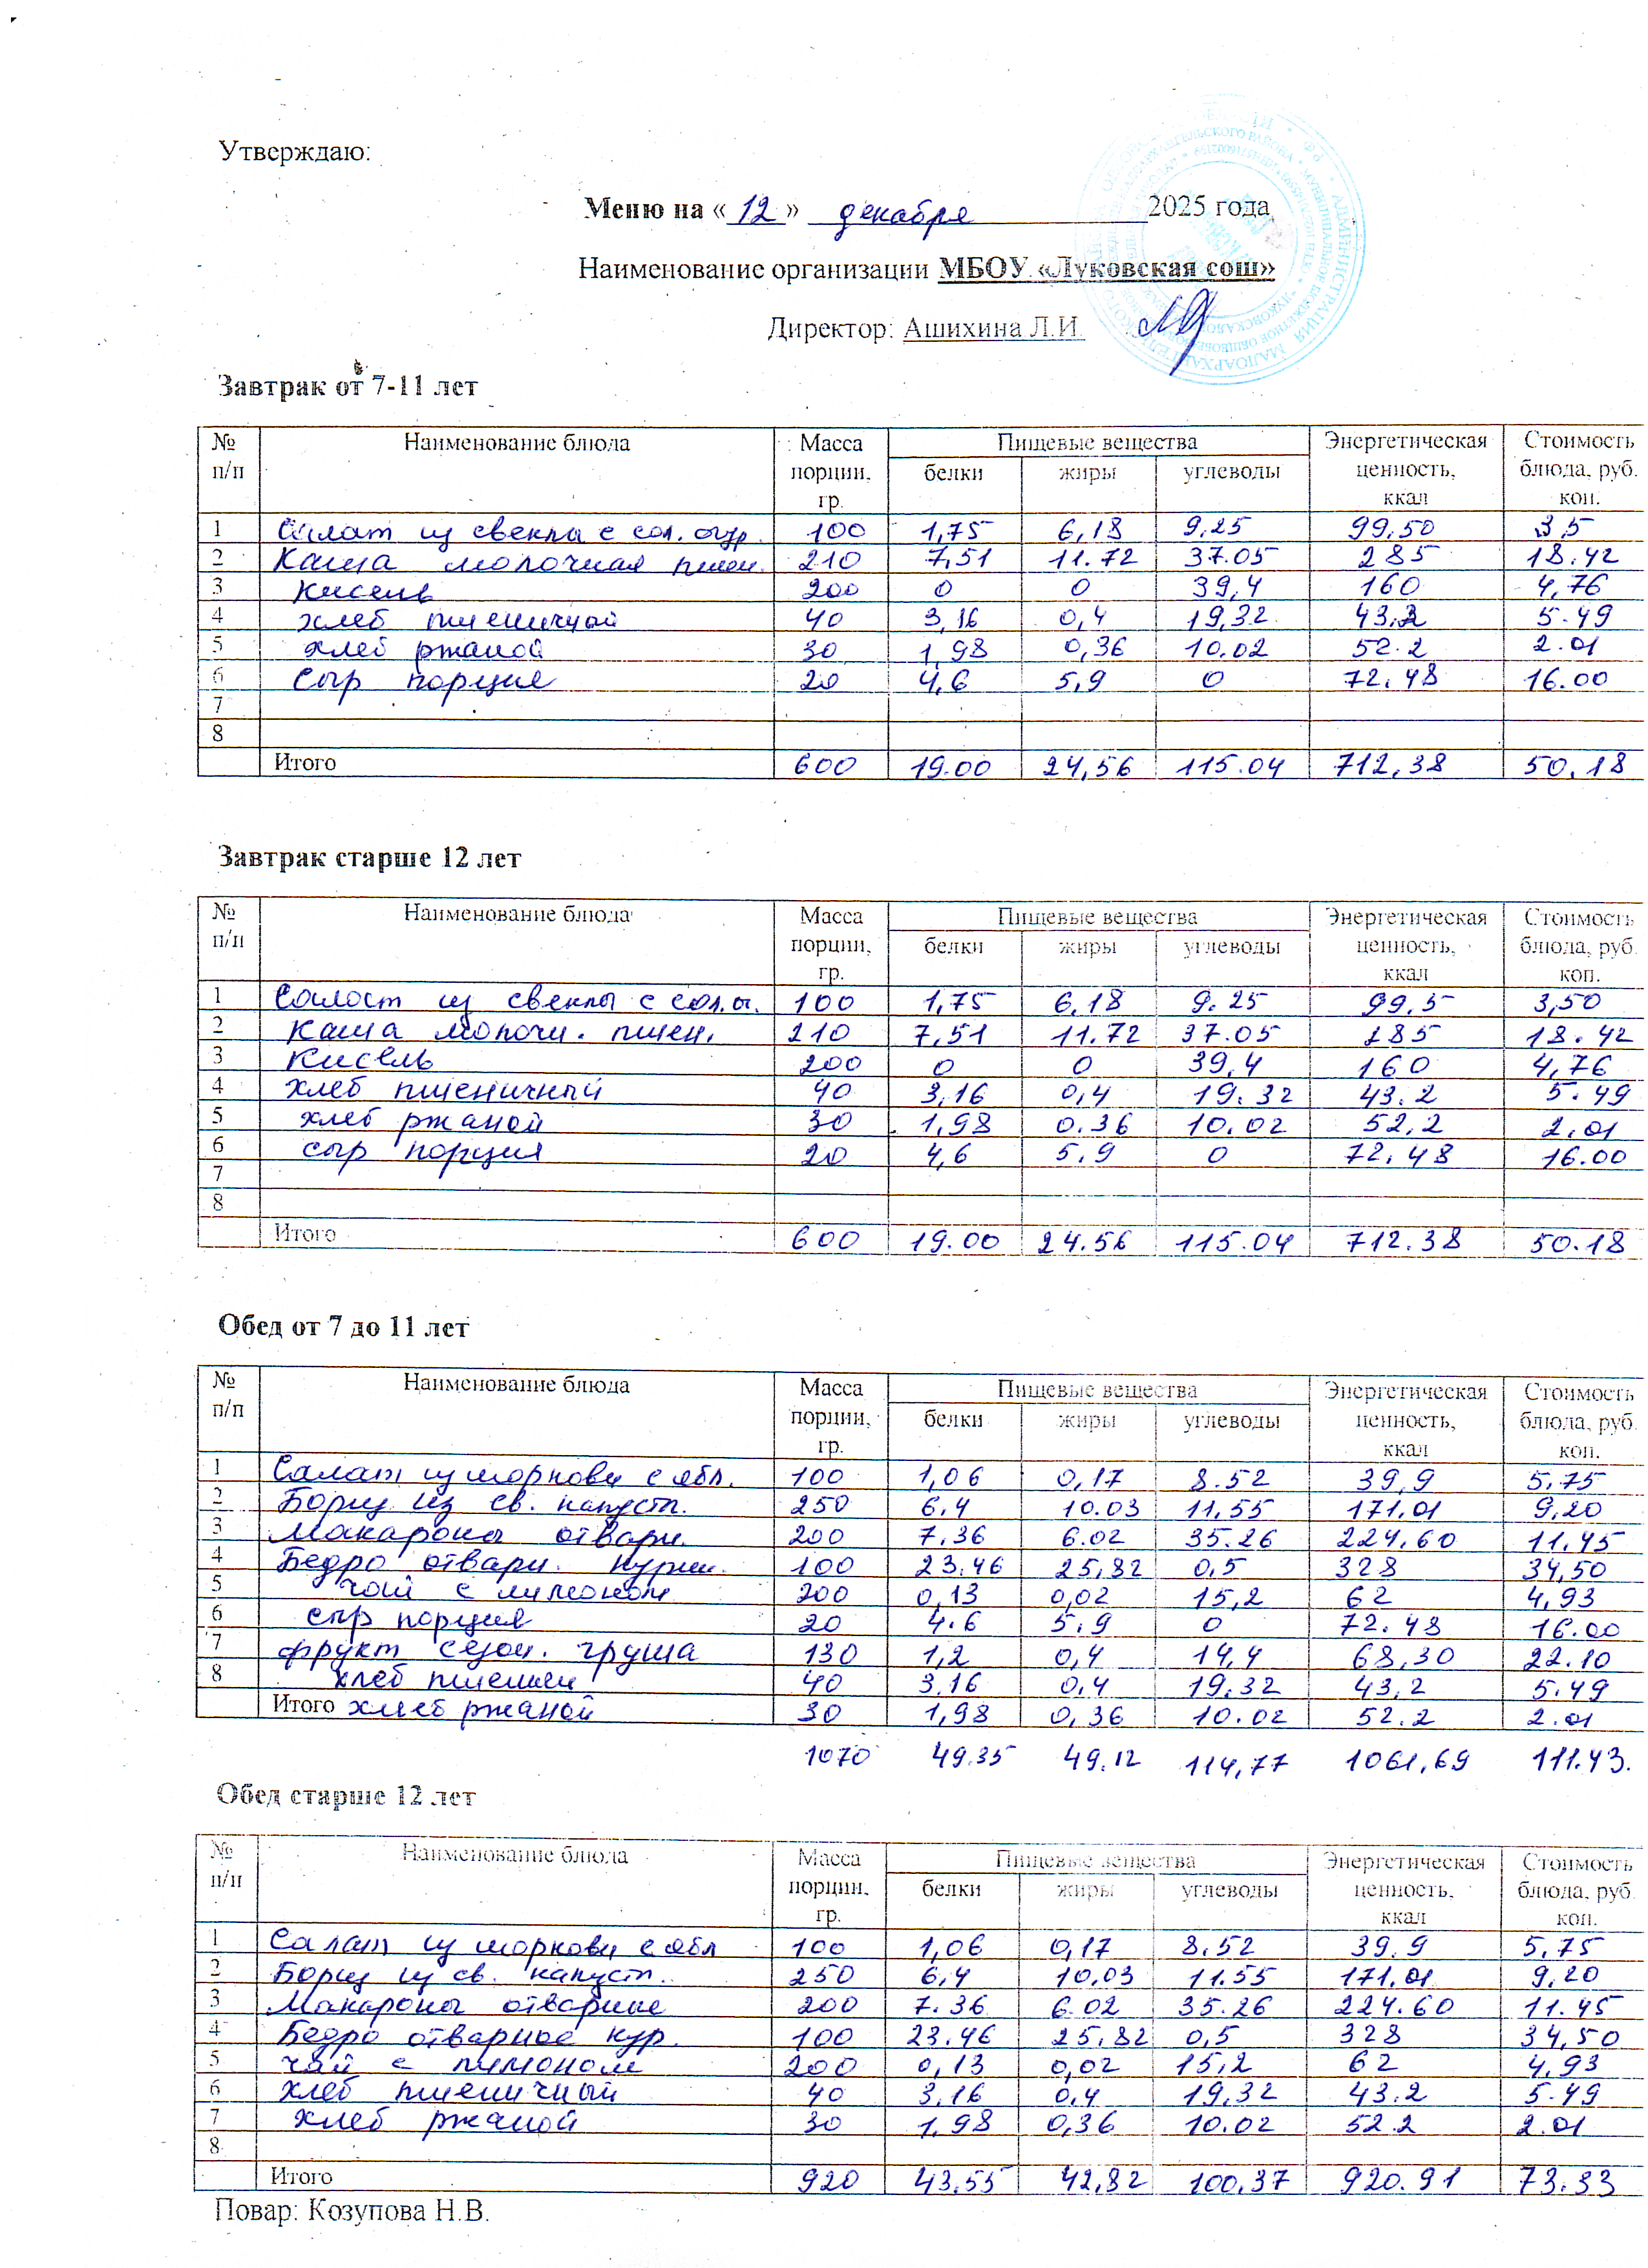 Утверждаю:
Меню на « 12 » декабря 2025 года
Наименование организации МБОУ «Луковская сош»
Директор: Ашихина Л.И.
Завтрак от 7-11 лет
№ п/п Наименование блюда Масса порции, гр. Пищевые вещества Энергетическая ценность, ккал Стоимость блюда, руб. коп.
белки жиры углеводы
1 Салат из свеклы с сол. огур. 100 1,75 6,18 9,25 99,50 3,5
2 Каша молочная пшен. 210 7,51 11.72 37.05 285 18.42
3 Кисель 200 0 0 39,4 160 4,76
4 хлеб пшеничный 40 3,16 0,4 19,32 43,2 5.49
5 хлеб ржаной 30 1,98 0,36 10.02 52.2 2.01
6 Сыр порция 20 4,6 5,9 0 72,48 16.00
7
8
Итого 600 19.00 24,56 115.04 712,38 50,18
Завтрак старше 12 лет
№ п/п Наименование блюда Масса порции, гр. Пищевые вещества Энергетическая ценность, ккал Стоимость блюда, руб. коп.
белки жиры углеводы
1 Салат из свеклы с сол.о. 100 1,75 6,18 9.25 99,5 3,50
2 Каша молочн. пшен. 210 7,51 11.72 37.05 285 18.42
3 Кисель 200 0 0 39,4 160 4,76
4 хлеб пшеничный 40 3,16 0,4 19.32 43.2 5.49
5 хлеб ржаной 30 1,98 0.36 10.02 52,2 2,01
6 сыр порция 20 4,6 5,9 0 72,48 16.00
7
8
Итого 600 19.00 24.56 115.04 712.38 50.18
Обед от 7 до 11 лет
№ п/п Наименование блюда Масса порции, гр. Пищевые вещества Энергетическая ценность, ккал Стоимость блюда, руб. коп.
белки жиры углеводы
1 Салат из моркови с ябл. 100 1,06 0,17 8.52 39,9 5,75
2 Борщ из св. капуст. 250 6,4 10.03 11,55 171,01 9,20
3 Макароны отварн. 200 7,36 6.02 35.26 224,60 11,45
4 Бедро отварн. курин. 100 23.46 25,82 0,5 328 34,50
5 чай с лимоном 200 0,13 0,02 15,2 62 4,93
6 сыр порция 20 4.6 5,9 0 72.48 16.00
7 фрукт сезон. груша 130 1,2 0,4 14,4 68,30 22.10
8 хлеб пшен 40 3.16 0,4 19.32 43,2 5.49
Итого хлеб ржаной 30 1,98 0,36 10.02 52.2 2.01
1070 49.35 49.12 114,77 1061,69 111.43.
Обед старше 12 лет
№ п/п Наименование блюда Масса порции, гр. Пищевые вещества Энергетическая ценность, ккал Стоимость блюда, руб. коп.
белки жиры углеводы
1 Салат из моркови с ябл 100 1,06 0,17 8.52 39.9 5,75
2 Борщ из св. капуст. 250 6,4 10,03 11.55 171,01 9,20
3 Макароны отварные 200 7.36 6.02 35.26 224.60 11.45
4 Бедро отварное кур. 100 23.46 25,82 0,5 328 34,50
5 чай с лимоном 200 0,13 0,02 15,2 62 4,93
6 хлеб пшеничный 40 3,16 0,4 19,32 43.2 5.49
7 хлеб ржаной 30 1,98 0,36 10.02 52.2 2.01
8
Итого 920 43,55 42,82 100,37 920.91 73.33
Повар: Козупова Н.В.